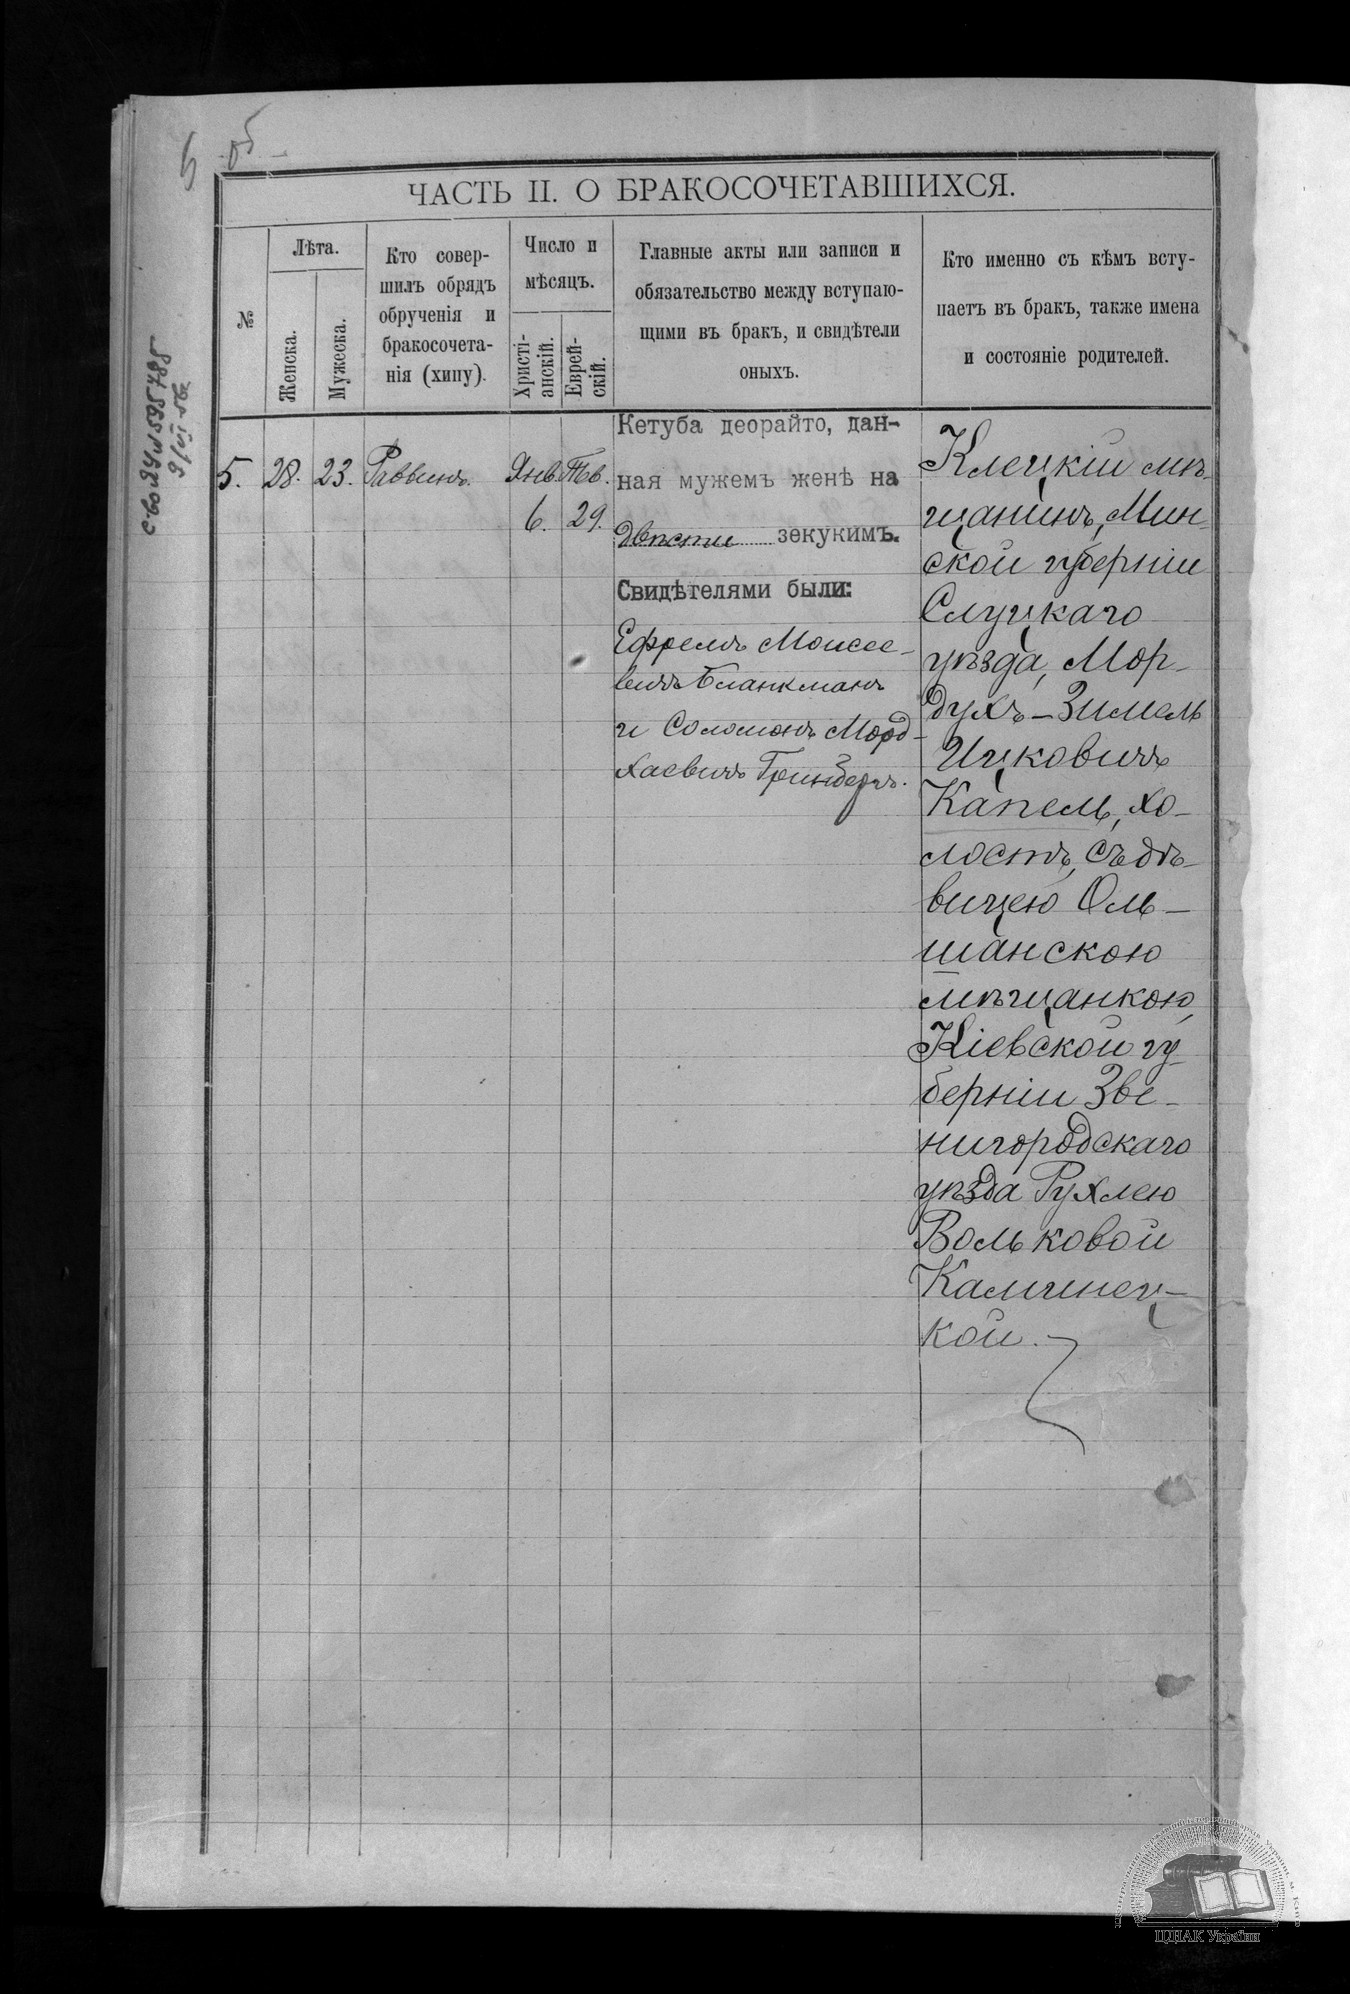 5 об
ЧАСТЬ II. О БРАКОСОЧЕТАВШИХСЯ.
№
Лѣта.
Женска.
Мужеска.
Кто совер-
шилъ обрядъ
обрученія и
бракосочета-
нія (хипу).
Число и
мѣсяцъ.
Христі-
анскій.
Еврей-
скій.
Главные акты или записи и
обязательство между вступаю-
щими въ бракъ, и свидѣтели
оныхъ.
Кто именно съ кѣмъ всту-
паетъ въ бракъ, также имена
и состояніе родителей.
5. 28. 23. Раввинъ. Янв. Тев.
6. 29.
Кетуба деорайто, дан-
ная мужемъ женѣ на
двѣсти зекукимъ.
Свидѣтелями были:
Ефремъ Моисее-
вичъ Бланкманъ
и Соломонъ Морд-
хаевичъ Гринбергъ.
Клецкій мѣ-
щанинъ, Мин-
ской губерніи
Слуцкаго
уѣзда, Мор-
духъ-Зимель
Ицковичъ
Капель, хо-
лостъ, съ дѣ-
вицею Оль-
шанскою
мѣщанкою,
Кіевской гу-
берніи Зве-
нигородскаго
уѣзда Рухлею
Вольковой
Каминец-
кой.
ЦДІАК України